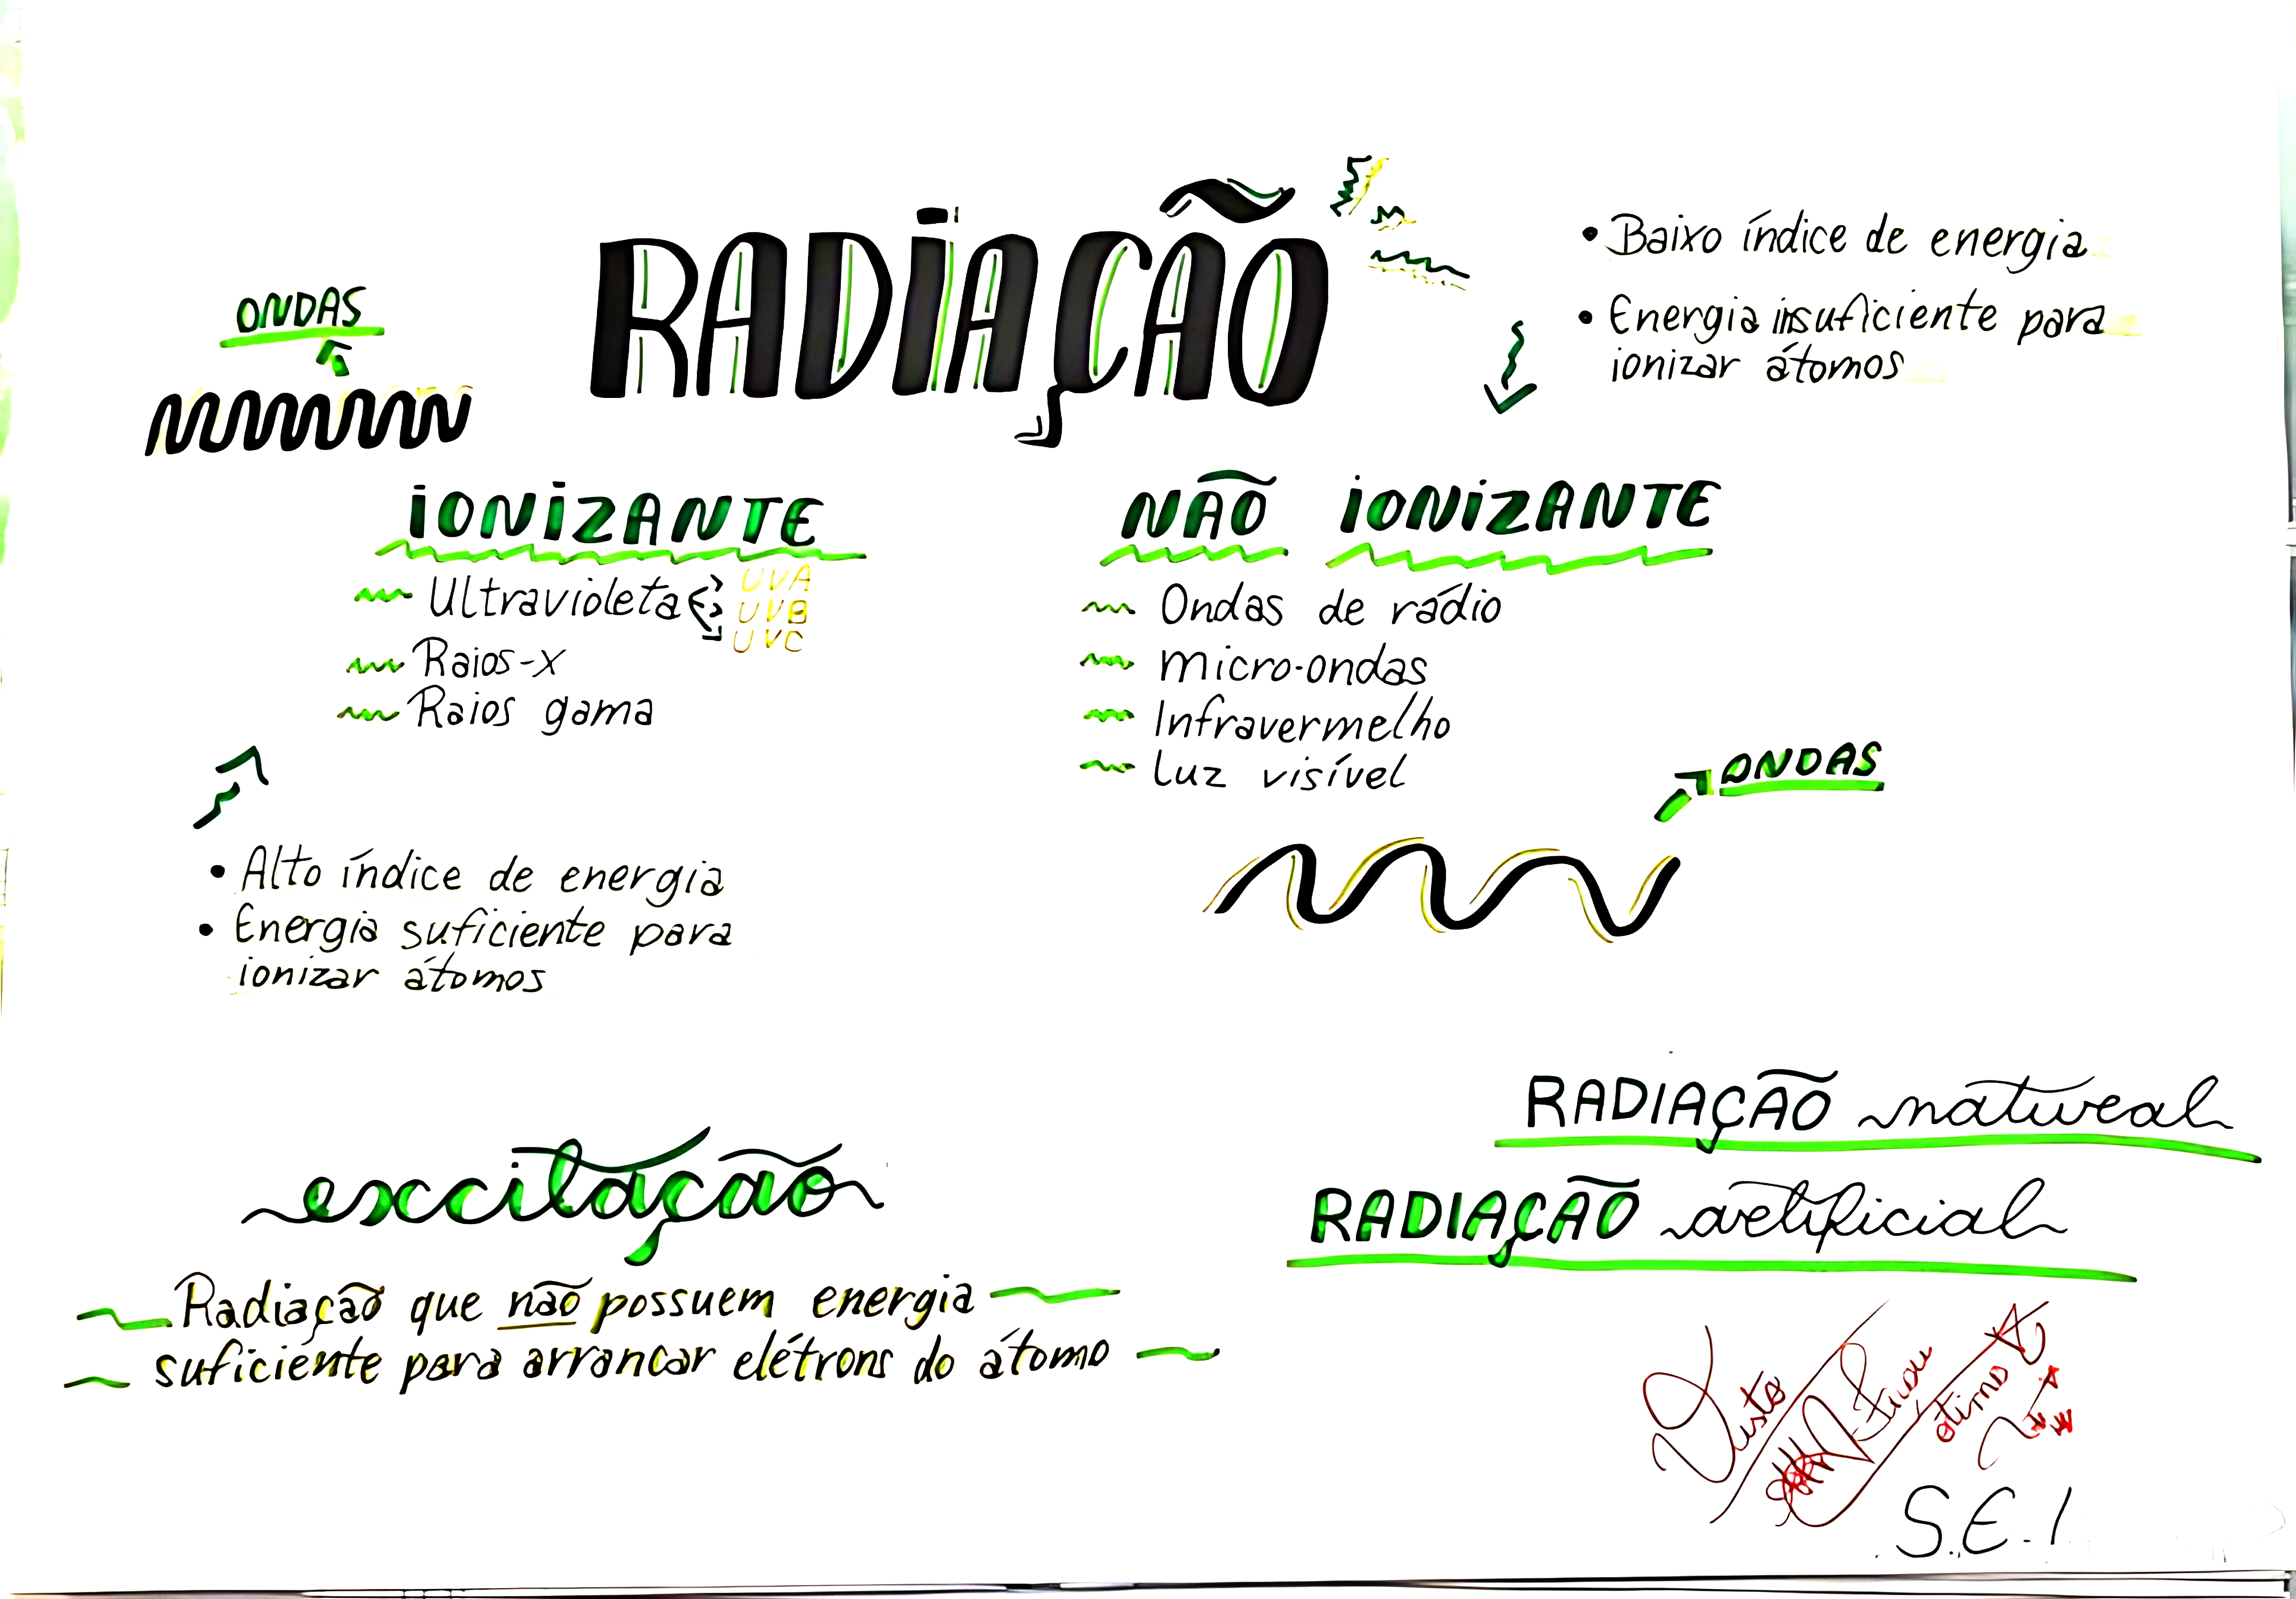 RADIAÇÃO
ONDAS
• Baixo índice de energia
• Energia insuficiente para
ionizar átomos
IONIZANTE
Ultravioleta UVA
UVB
UVC
Raios-X
Raios gama
NÃO IONIZANTE
Ondas de rádio
Micro-ondas
Infravermelho
Luz visível
ONDAS
• Alto índice de energia
• Energia suficiente para
ionizar átomos
RADIAÇÃO natural
RADIAÇÃO artificial
excitação
Radiação que não possuem energia
suficiente para arrancar elétrons do átomo
Visto
Ficou
ótimo
S.E.I